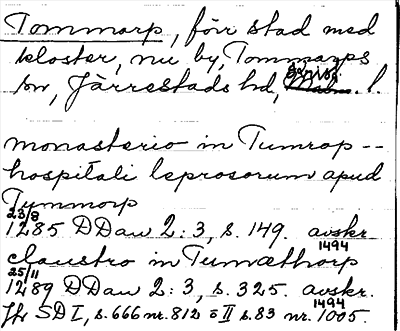 Tommarp, förr stad med
kloster, nu by, Tommarps
sn, Järrestads hd, Krist. l.
monasterio in Tumrap --
hospitali leprosorum apud
Tymmorp
23/8
1285 DDan 2:3, s. 149. avskr.
1494
claustro in Tumæthorp
25/11
1289 DDan 2:3, s. 325. avskr.
1494
Jfr SD I, s. 666 nr. 812 o II s. 83 nr. 1005.